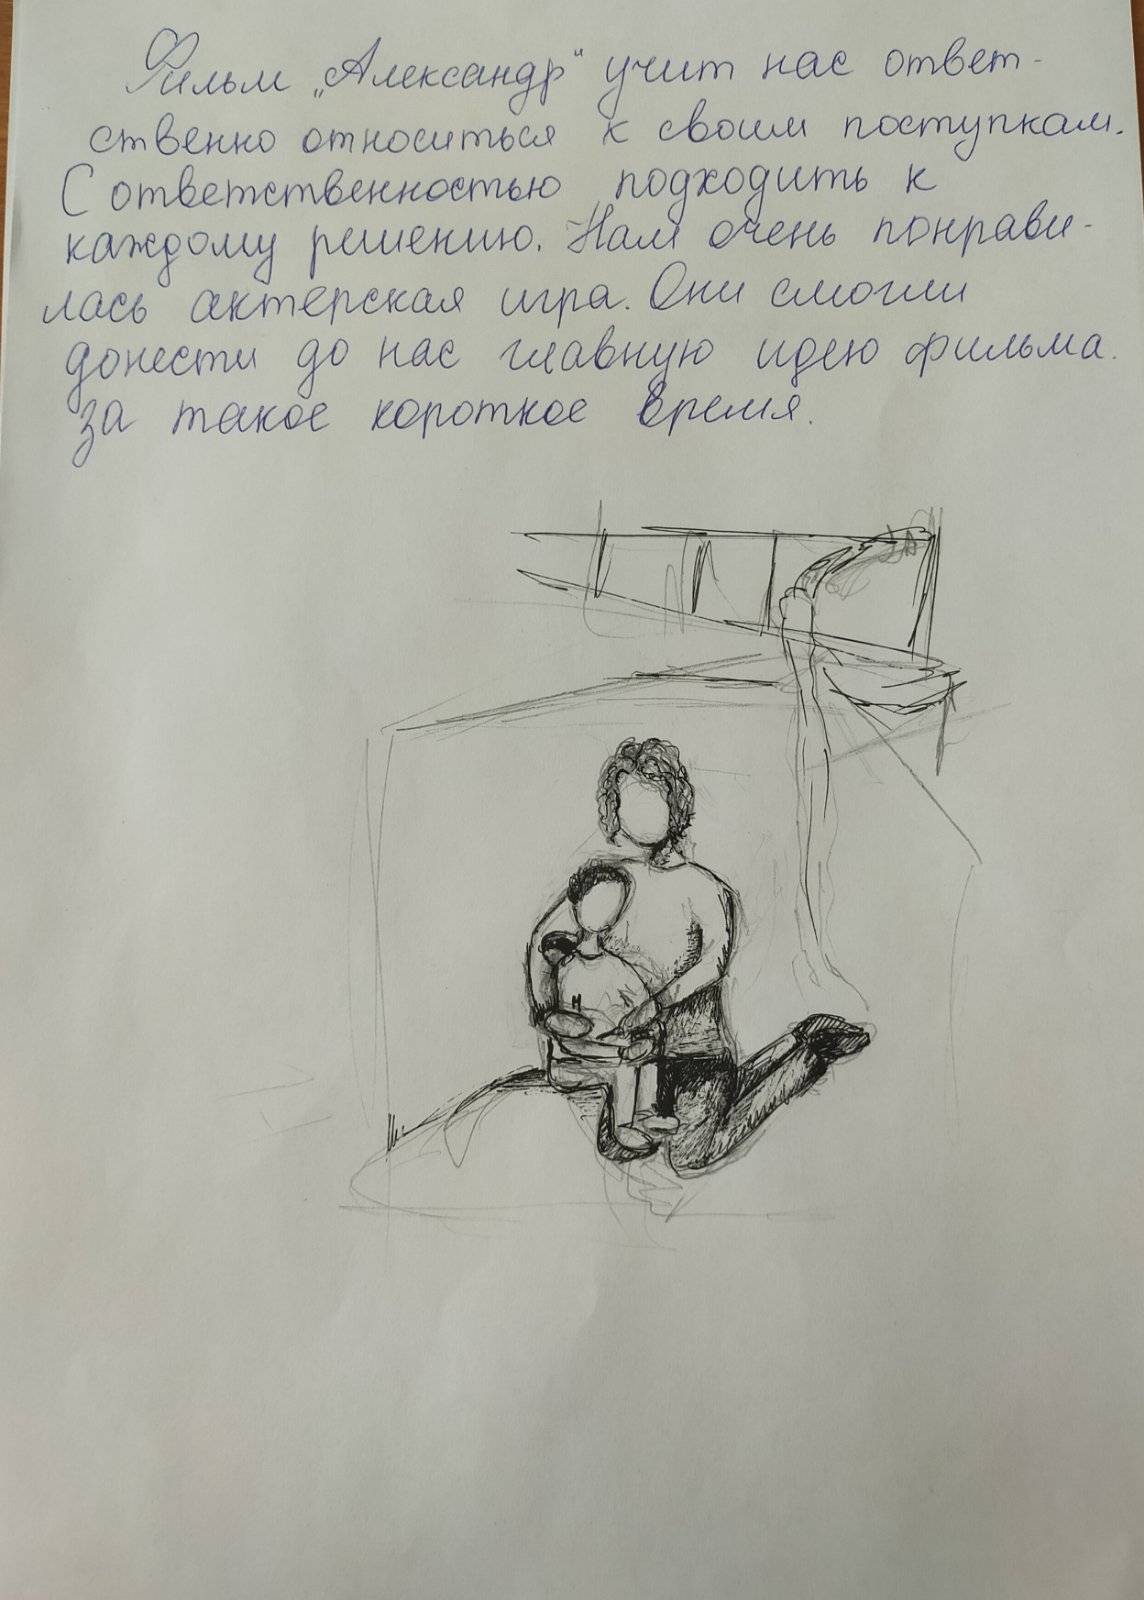 Фильм „Александр“ учит нас ответ-
ственно относиться к своим поступкам.
С ответственностью подходить к
каждому решению. Нам очень понрави-
лась актерская игра. Они смогли
донести до нас главную идею фильма.
за такое короткое время.